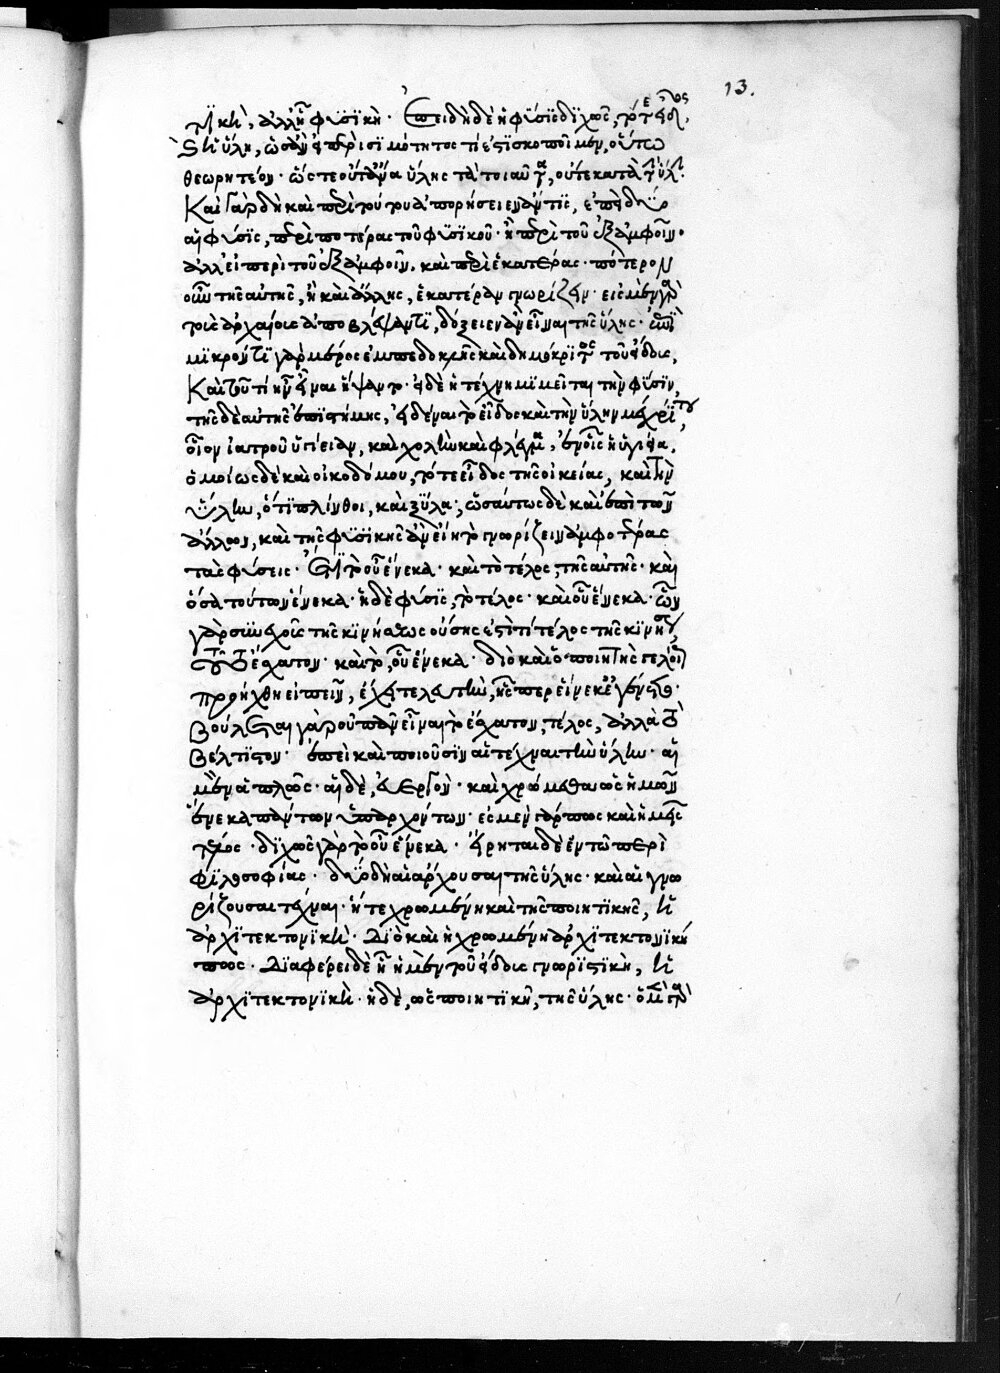 13.
τικὴ, ἀλλ' ᾗ φυσικὴ· Ἐπειδὴ δὲ ἡ φύσις διχῶς, τότε εἶδος,
καὶ ἡ ὕλη, ὡς ἂν εἰ περὶ σιμότητος τί ἐστι σκοποῖμεν, οὕτω
θεωρητέον· ὥστε οὔτ' ἄνευ ὕλης τὰ τοιαῦτα, οὔτε κατὰ τὴν ὕλην·
Καὶ γὰρ δὴ καὶ περὶ τούτου ἀπορήσειεν ἄν τις, ἐπεὶ δύο
αἱ φύσεις, περὶ ποτέρας τοῦ φυσικοῦ· ἢ περὶ τοῦ ἐξ ἀμφοῖν·
ἀλλ' εἰ περὶ τοῦ ἐξ ἀμφοῖν, καὶ περὶ ἑκατέρας· πότερον
οὖν τῆς αὐτῆς, ἢ καὶ ἄλλης, ἑκατέραν γνωρίζειν· εἰς μὲν γὰρ
τοὺς ἀρχαίους ἀποβλέψαντι, δόξειεν ἂν εἶναι τῆς ὕλης· ἐπὶ
μικρὸν τι γὰρ μέρος ἐμπεδοκλῆς καὶ δημόκριτος τοῦ εἴδους,
Καὶ τοῦ τί ἦν εἶναι ἥψαντο· εἰ δὲ ἡ τέχνη μιμεῖται τὴν φύσιν,
τῆς δὲ αὐτῆς ἐπιστήμης, εἰδέναι τὸ εἶδος καὶ τὴν ὕλην μέχρι του,
οἷον ἰατροῦ ὑγίειαν, καὶ χολὴν καὶ φλέγμα, ἐν οἷς ἡ ὑγίεια,
ὁμοίως δὲ καὶ οἰκοδόμου, τό τε εἶδος τῆς οἰκείας, καὶ τὴν
ὕλην, ὅτι πλίνθοι, καὶ ξύλα; ὡσαύτως δὲ καὶ ἐπὶ τῶν
ἄλλων, καὶ τῆς φυσικῆς ἂν εἴη τὸ γνωρίζειν ἀμφοτέρας
τὰς φύσεις· Ἔτι τὸ οὗ ἕνεκα· καὶ τὸ τέλος, τῆς αὐτῆς· καὶ
ὅσα τούτων ἕνεκα· ἡ δὲ φύσις, τὸ τέλος· καὶ οὗ ἕνεκα· ὧν
γὰρ συνεχοῦς τῆς κινήσεως οὔσης ἐστὶ τι τέλος τῆς κινήσεως,
τοῦτο ἔσχατον· καὶ τὸ, οὗ ἕνεκα· διὸ καὶ ὁ ποιητὴς γελοίως
προήχθη εἰπεῖν, ἔχει τελευτὴν, ἧς περ εἵνεκ' ἐγένετο·
Βούλεται γὰρ οὐ πᾶν εἶναι τὸ ἔσχατον, τέλος, ἀλλὰ τὸ
βέλτιστον· ἐπεὶ καὶ ποιοῦσιν αἱ τέχναι τὴν ὕλην· αἱ
μὲν ἁπλῶς· αἱ δὲ, εὐεργόν· καὶ χρώμεθα ὡς ἡμῶν
ἕνεκα πάντων ὑπαρχόντων· ἐσμὲν γάρ πως καὶ ἡμεῖς
τέλος· διχῶς γὰρ τὸ οὗ ἕνεκα· εἴρηται δὲ ἐν τῷ περὶ
φιλοσοφίας· δύο δὴ αἱ ἄρχουσαι τῆς ὕλης· καὶ αἱ γνω
ρίζουσαι τέχναι· ἥ τε χρωμένη καὶ τῆς ποιητικῆς, ἡ
ἀρχιτεκτονικὴ· Διὸ καὶ ἡ χρωμένη ἀρχιτεκτονική
πως· Διαφέρει δὲ ᾗ ἡ μὲν τοῦ εἴδους γνωριστική, ἡ
ἀρχιτεκτονική· ἡ δὲ, ὡς ποιητική, τῆς ὕλης· ὁ μὲν γὰρ